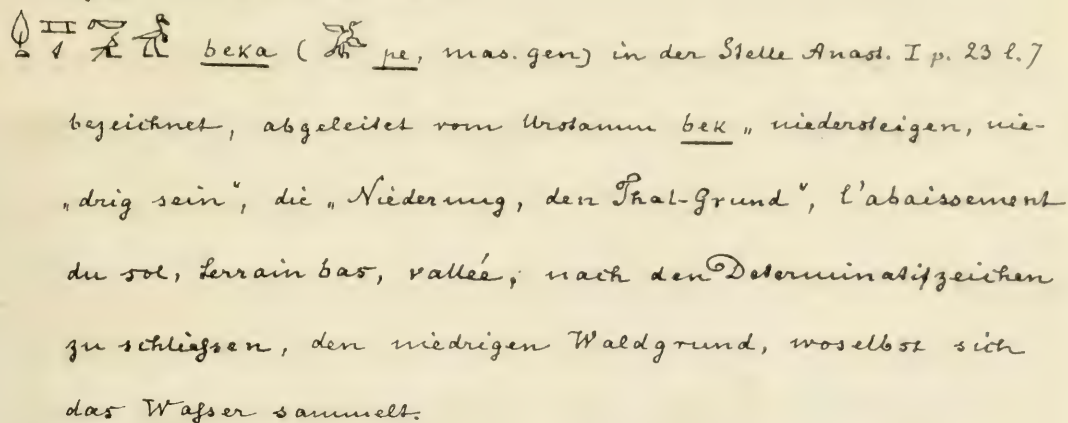 beka ( pe, mas. gen) in der Stelle Anast. I p. 23 l. 7
bezeichnet, abgeleitet vom Urstamm bek „niedersteigen, nie-
„drig sein“, die „Niederung, den Thal-Grund“, l'abaissement
du sol, terrain bas, valleé, nach den Determinatifzeichen
zu schließen, den niedrigen Waldgrund, woselbst sich
das Waßer sammelt.